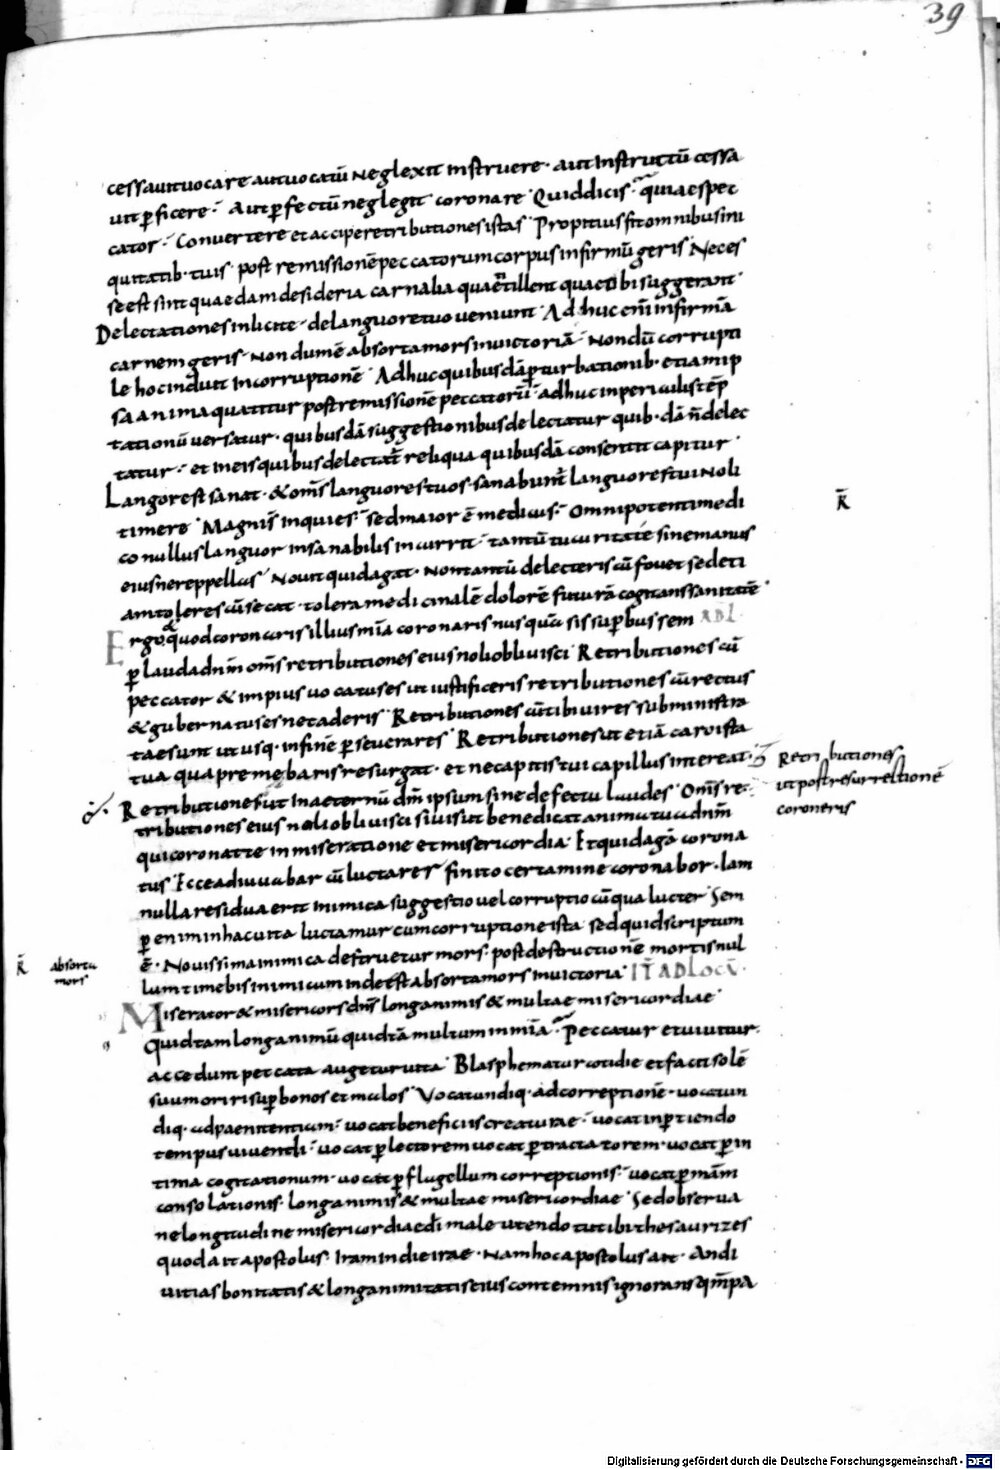 39
cessavit vocare aut vocatū neglexit instruere · aut instructū cessa
vit p̄ficere · aut p̄fectū neglegit coronare · Quid dicis · quia es pec
cator · Convertere et accipe retributiones istas · Propitius fit omnibus ini
quitatib· tuis · post remissionē peccatorum corpus infirmū geris · Neces
se est sint quaedam desideria carnalia quae tillent quae tibi suggerant
Delectationes inlicite · de languore tuo veniunt · Adhuc enī infirmā
carnem geris · nondum ē absorta mors in victoriā · nondū corrupti
le hoc induit incorruptionē · Adhuc quibusdā p̄turbationib· etiam ip
sa anima quatitur post remissionē peccatorū · adhuc in periculis tēp
tationū versatur · quibusdā suggestionibus delectatur quib·dā n̄ delec
tatur · et in eis quibus delectat̄ reliqua quibusdā consentit capitur ·
Langor est sanat · & om̄s languores tuos · sanabunt̄ languores tui noli
timere · Magni s̄ inquies · sed maior ē medicus · Omnipotenti medi
co nullus languor insanabilis incurrit · tantū tu curari te sine manus
eius ne reppellas · Novit quid agat · non tantū delecteris cū fovet sed eti
am toleres cū secat · tolera medicinalē dolorē futurā cogitans sanitatē ·
Ergo quod coronaris illius mīa coronaris nusquā sis superbus sem
p̄ lauda dn̄m om̄s retributiones eius noli oblivisci · Retributiones cū
peccator & impius vocatus es ut iustificeris retributiones cū rectus
& gubernatus es ne caderis · Retributiones cū tibi vires subministra
tae sunt ut usq· in finē p̄severares · Retributiones ut etiā caro ista
tua qua premebaris resurgat · et ne capitis tui capillus intereat ·
Retributiones ut postresurrectionē coroneris
Retributiones ut in aeternū dm̄ ipsum sine defectu laudes · Om̄s re
tributiones eius noli oblivisci si vis ut benedicat anima tua dn̄m
qui coronat te in miseratione et misericordia · Et quid agā corona
tus · Ecce adiuvabar cū luctares finito certamine coronabor · Iam
nulla residua erit inimica suggestio vel corruptio cū qua lucter · Sem
p̄ enim in hac vita luctamur cum corruptione ista · sed quid scriptum
ē · Novissima inimica destruetur mors · post destructionē mortis nul
absorta mors
lum timebis inimicum inde est absorta mors in victoria · IT̄ AD LOCŪ ·
Miserator & misericors dn̄s longanimis & multae misericordiae ·
Quid tam longanimū quid tā multum in mīa · Peccatur et vivitur ·
accedunt peccata augetur vita · Blasphematur cotidie et facit solē
suum oriri sup̄ bonos et malos · Vocat undiq· ad correptionē · vocat un
diq· ad paenitentium · vocat beneficiis creaturae · vocat inp̄tiendo
tempus vivendi · vocat p̄ lectorem vocat p̄ tractatorem · vocat p̄ in
tima cogitationum · vocat p̄ flagellum correptionis · vocat p̄ mām
consolationis · longanimis & multae misericordiae · Sed observa
ne longitudine misericordiae dī male utendo tu tibi thesaurizes
quod ait apostolus · Iram in die irae · Nam hoc apostolus ait · An di
vitias bonitatis & longanimitatis eius contemnis ignorans qm̄ pa
Digitalisierung gefördert durch die Deutsche Forschungsgemeinschaft - DFG